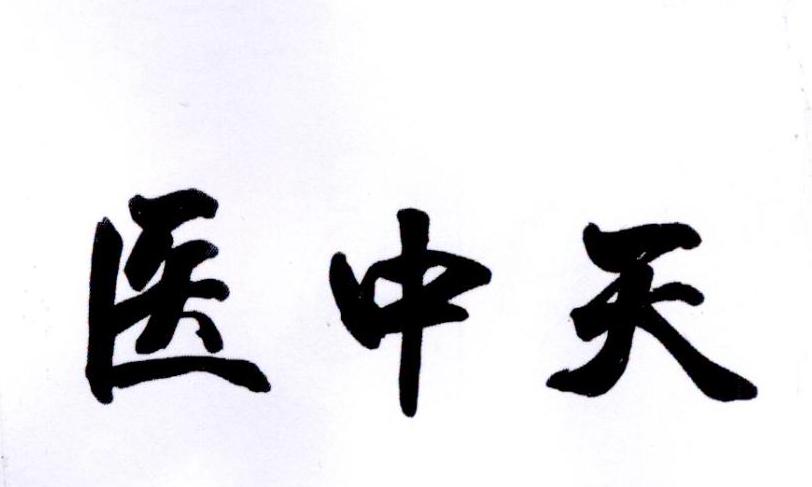 医中天